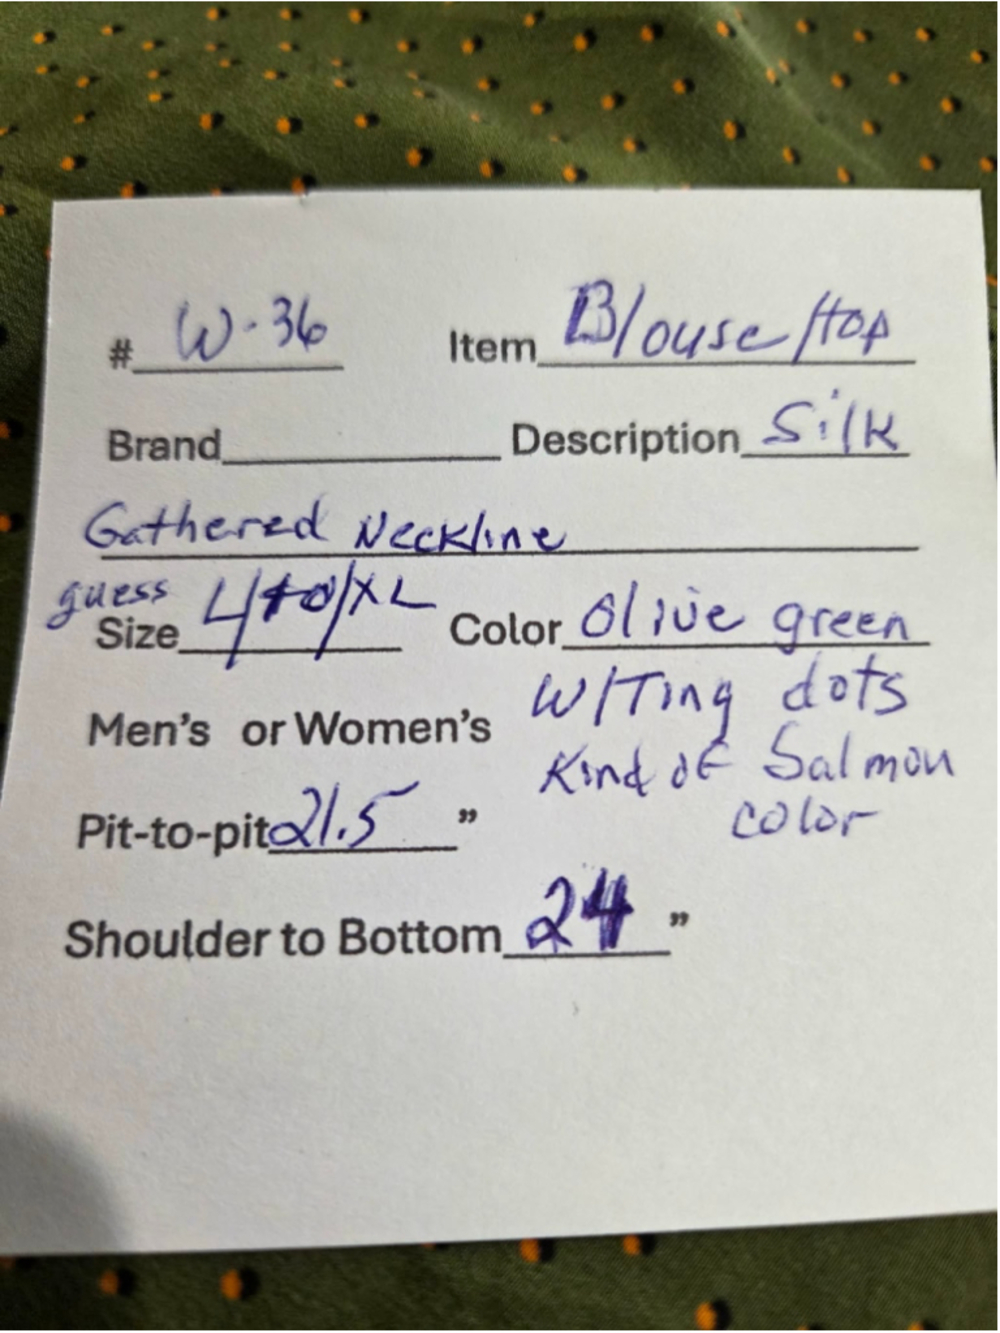 # W-36 Item Blouse/top
Brand Description Silk
Gathered Neckline
guess
Size L/to/XL Color Olive green
W/Tiny dots
Men's or Women's
Kind of Salmon
color
Pit-to-pit 21.5 "
Shoulder to Bottom 24 "